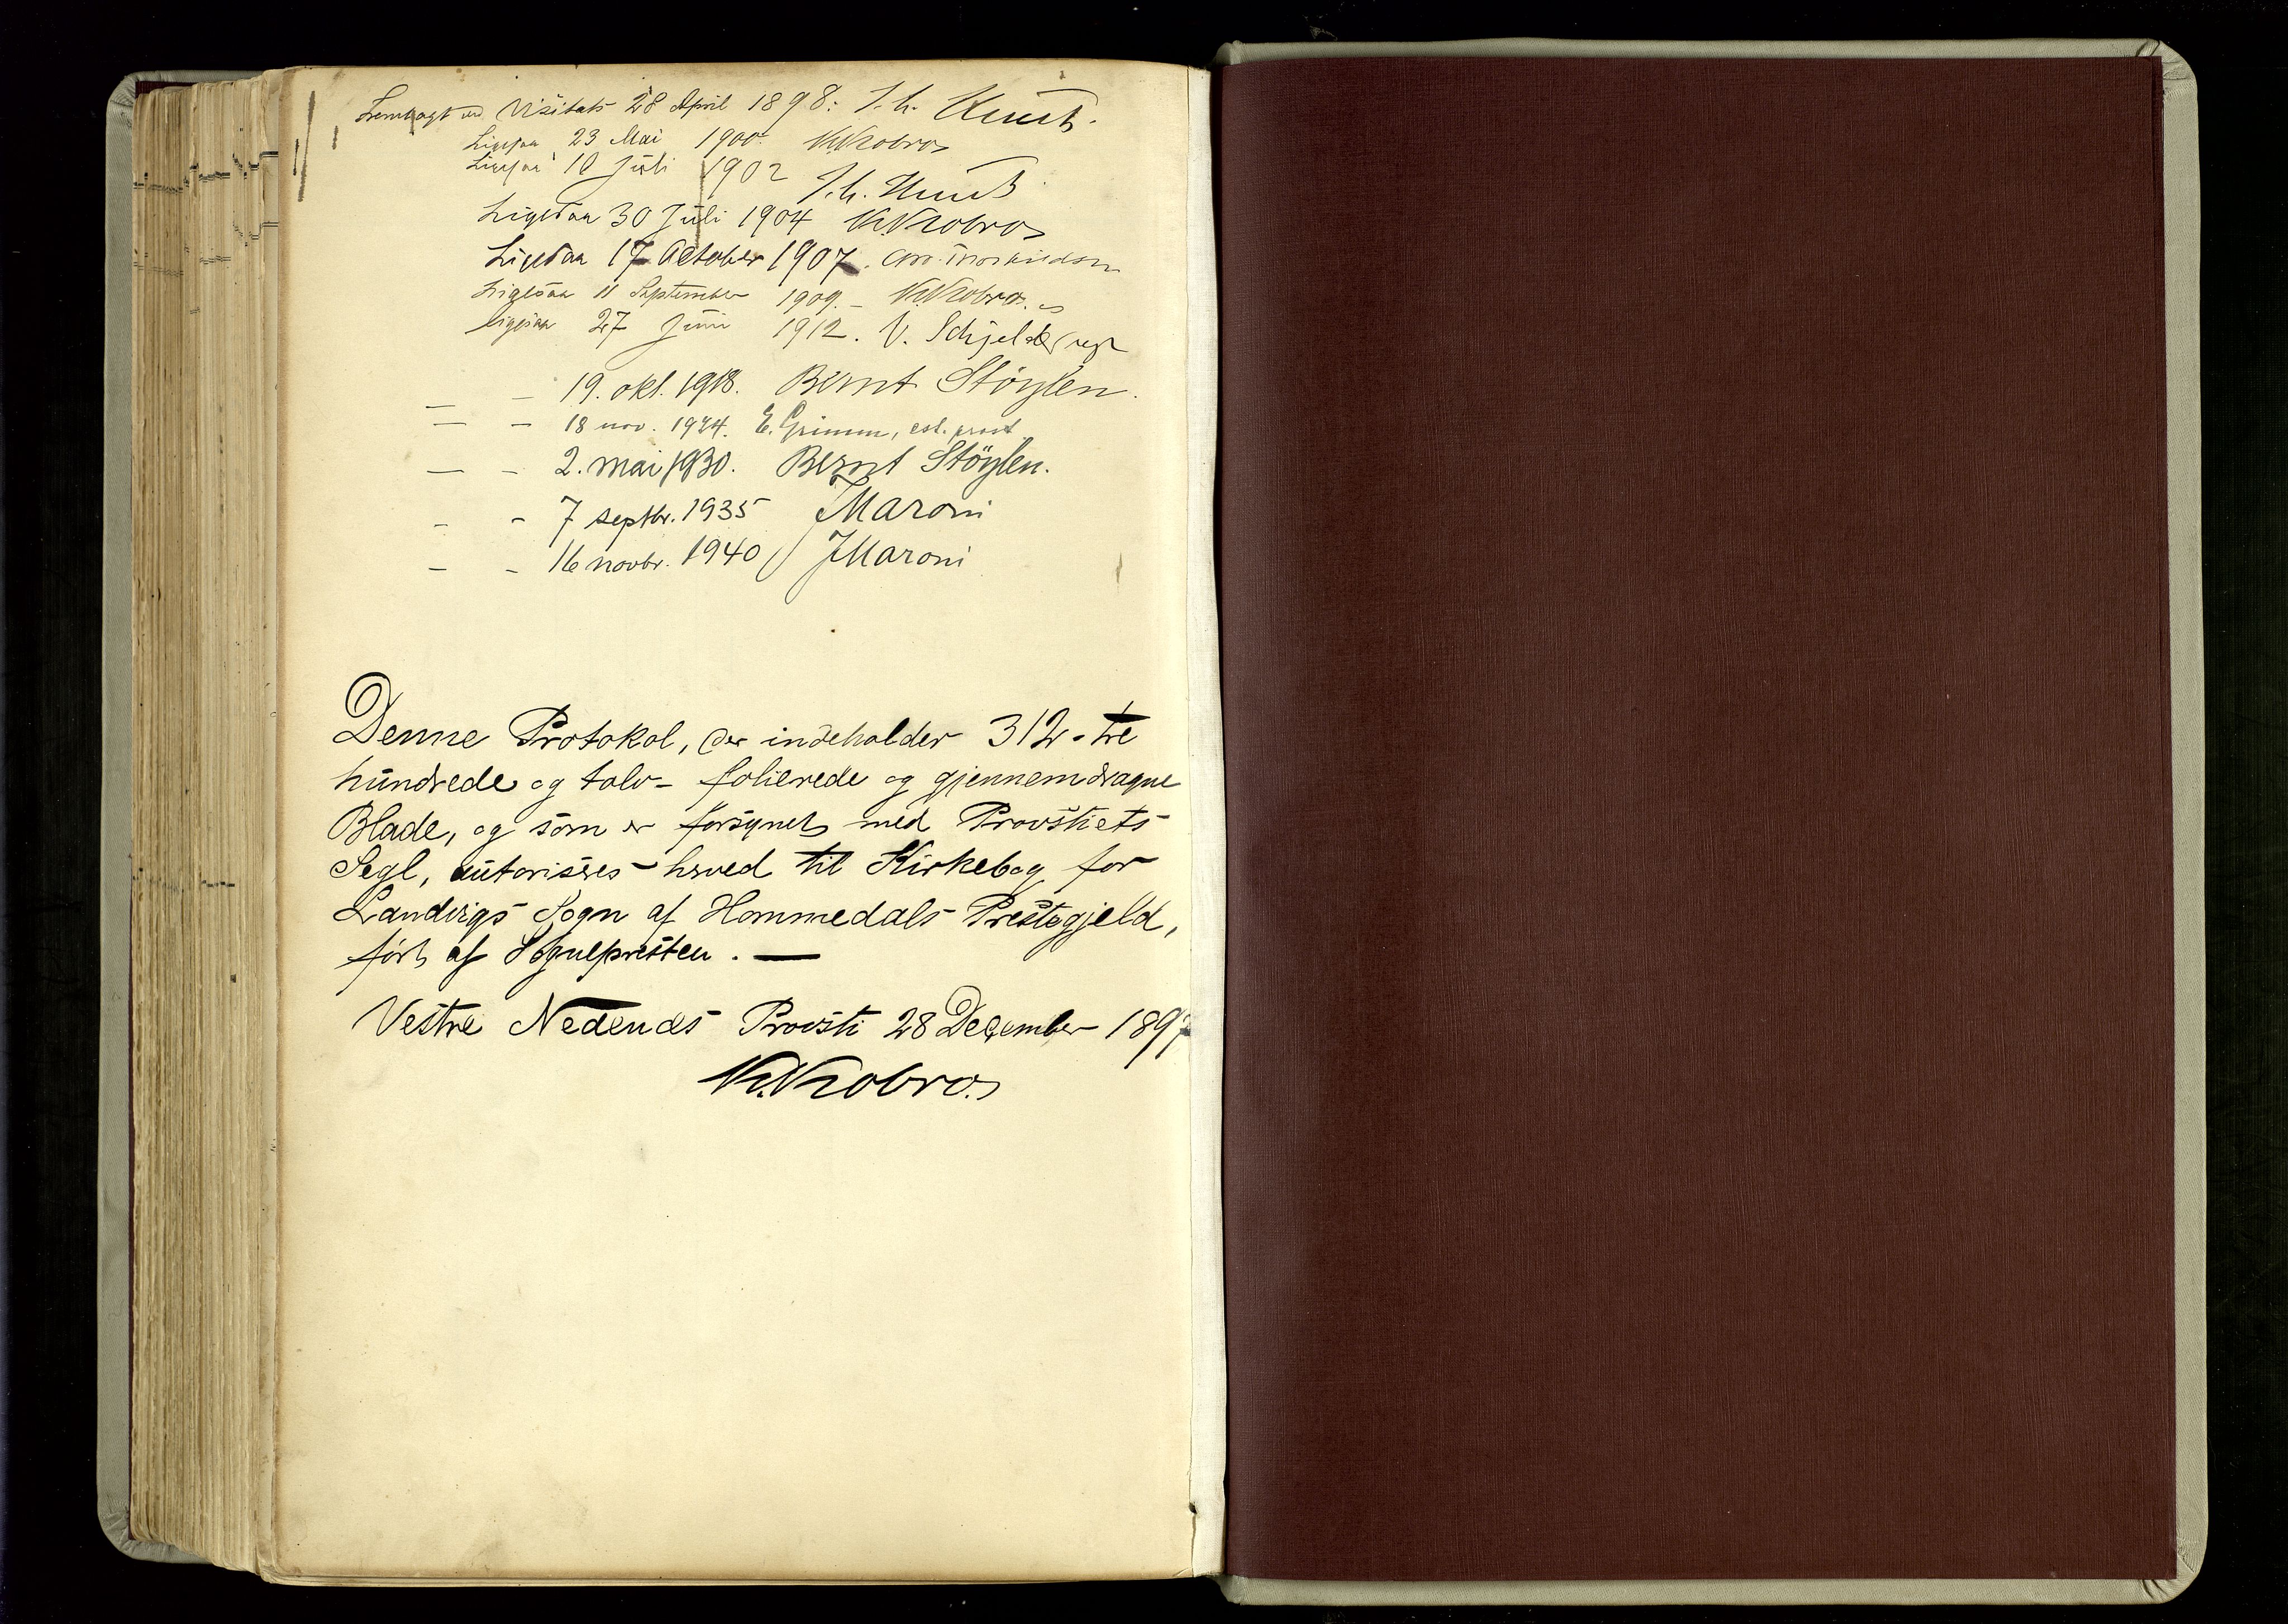 Fremlagt ved Visitats 28 April 1898: J. C. Heuch.
Ligesaa 23 Mai 1900. K. Krobros
Ligesaa 10 Juli 1902 J. C. Heuch
Ligesaa 30 Juli 1904 K. Krobros
Ligesaa 17 October 1907.
Ligesaa 11 September 1909. – K. Krobros.
Ligesaa 27 Juni 1912. V. Schjelderup
— – 19. okt. 1918. Bernt Støylen.
— – 18 nov. 1924. E. Grimm, cst. prost
— – 2. mai 1930. Bernt Støylen.
– – 7 septbr. 1935 JMaroni
– – 16 novbr. 1940 JMaroni
Denne Protokol, der indeholder 312 - tre
hundrede og tolv - folierede og gjennemdragne
Blade, og som er forsynet med Provstiets
Segl, autoriseres herved til Kirkebog for
Landvigs Sogn af Hommedals Prestegjeld,
ført af Sognepresten. —
Vestre Nedenes Provsti 28 December 1897
K. Krobros